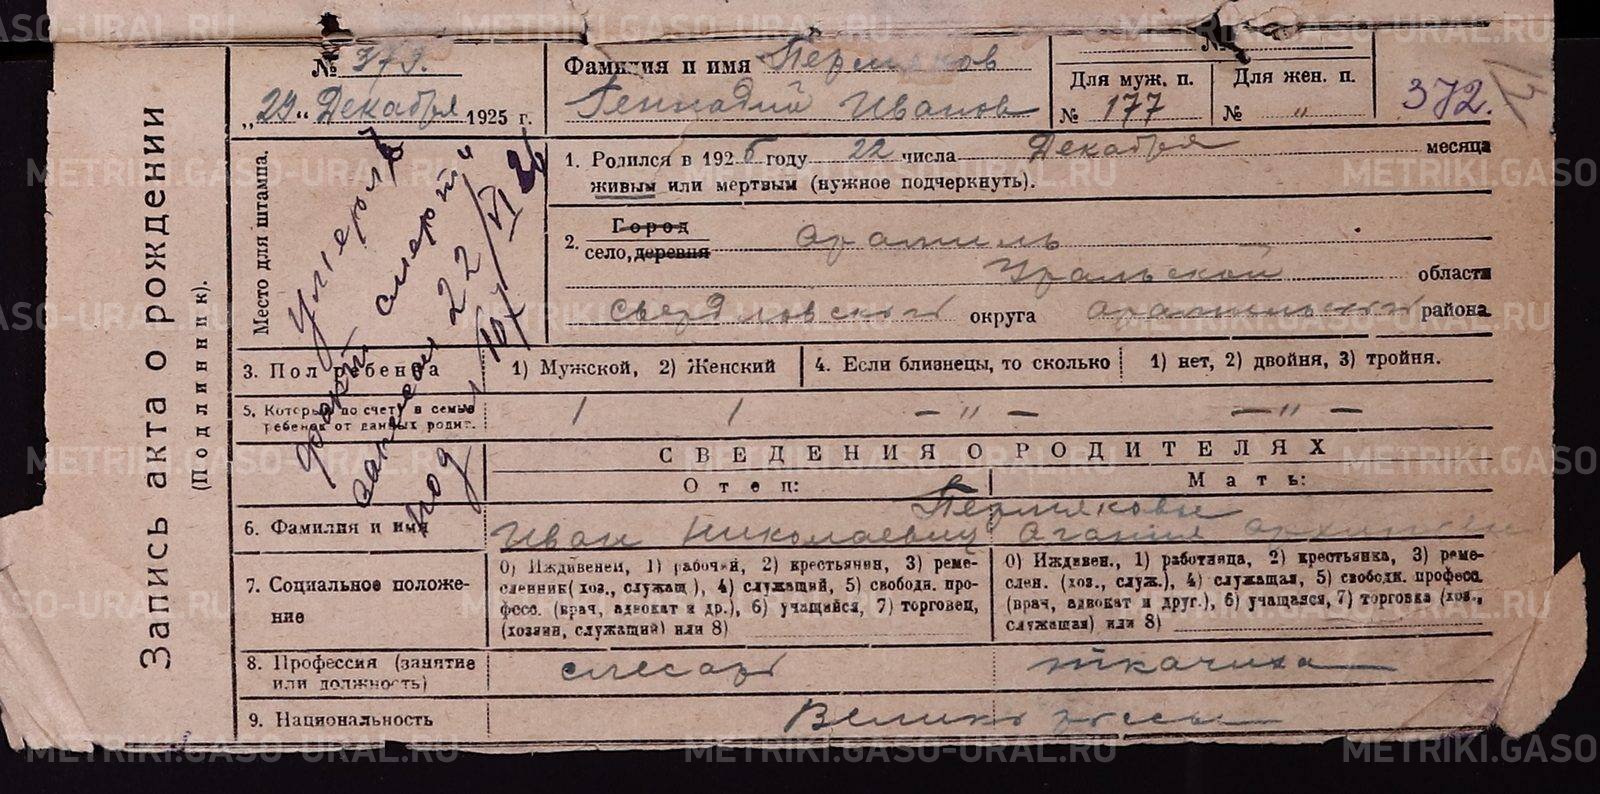 Запись акта о рождении
(Подлинник).
№ 373.
„29“ Декабря 1925 г.
Фамилия и имя Пермяков
Геннадий Иванов
Для муж. п.
№ 177
Для жен. п.
№ "
372.
Место для штампа.
Умерла
акт смерти
записан 22/VI 26
под №
1. Родился в 1925 году 22 числа Декабря месяца
живым или мертвым (нужное подчеркнуть).
2. Город
село, деревня Арамиль
Уральской области
Свердловского округа Арамильского района
3. Пол ребенка 1) Мужской, 2) Женский 4. Если близнецы, то сколько 1) нет, 2) двойня, 3) тройня.
5. Который по счету в семье
ребенок от данных родит. 1 1 — " — — " —
СВЕДЕНИЯ О РОДИТЕЛЯХ
Отец: Мать:
Пермяковы
6. Фамилия и имя Иван Николаевич
7. Социальное положе-
ние
0) Иждивенец, 1) рабочий, 2) крестьянин, 3) реме-
сленник (хоз., служащ.), 4) служащий, 5) свободн. про-
фесс. (врач, адвокат и др.), 6) учащийся, 7) торговец,
(хозяин, служащий) или 8)
0) Иждивен., 1) работница, 2) крестьянка, 3) реме-
слен. (хоз., служ.), 4) служащая, 5) свободн. професс.
(врач, адвокат и друг.), 6) учащаяся, 7) торговка (хоз.,
служащая) или 8)
8. Профессия (занятие
или должность) слесарь ткачиха
9. Национальность Великороссы
METRIKI.GASO-URAL.RU